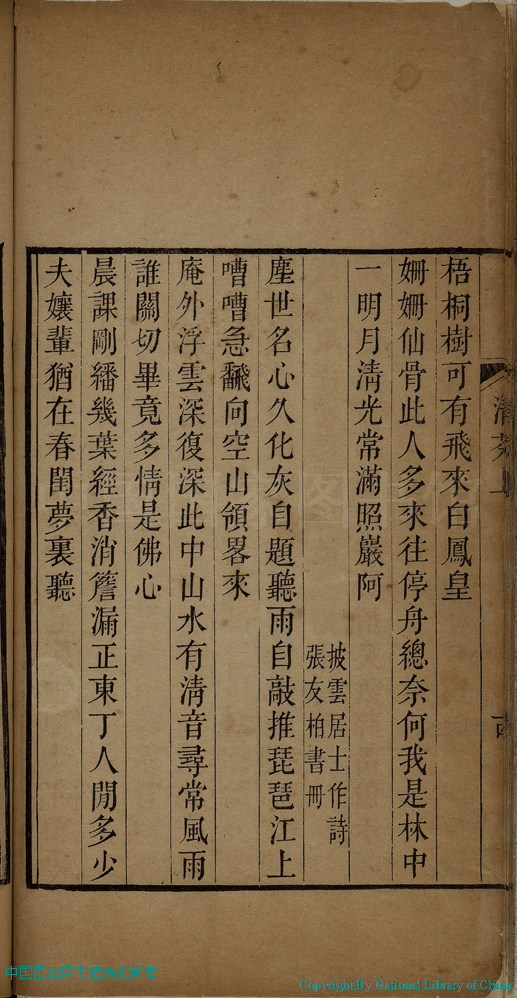 梧桐樹可有飛來白鳳皇
姍姍仙骨此人多來往停舟總奈何我是林中
一明月清光常滿照巖阿
披雲居士作詩
張友柏書冊
塵世名心久化灰自題聽雨自敲推琵琶江上
嘈嘈急飜向空山領畧來
庵外浮雲深復深此中山水有清音尋常風雨
誰關切畢竟多情是佛心
晨課剛繙幾葉經香消簷漏正東丁人閒多少
夫孃輩猶在春閨夢裏聽
Copyright By National Library of China